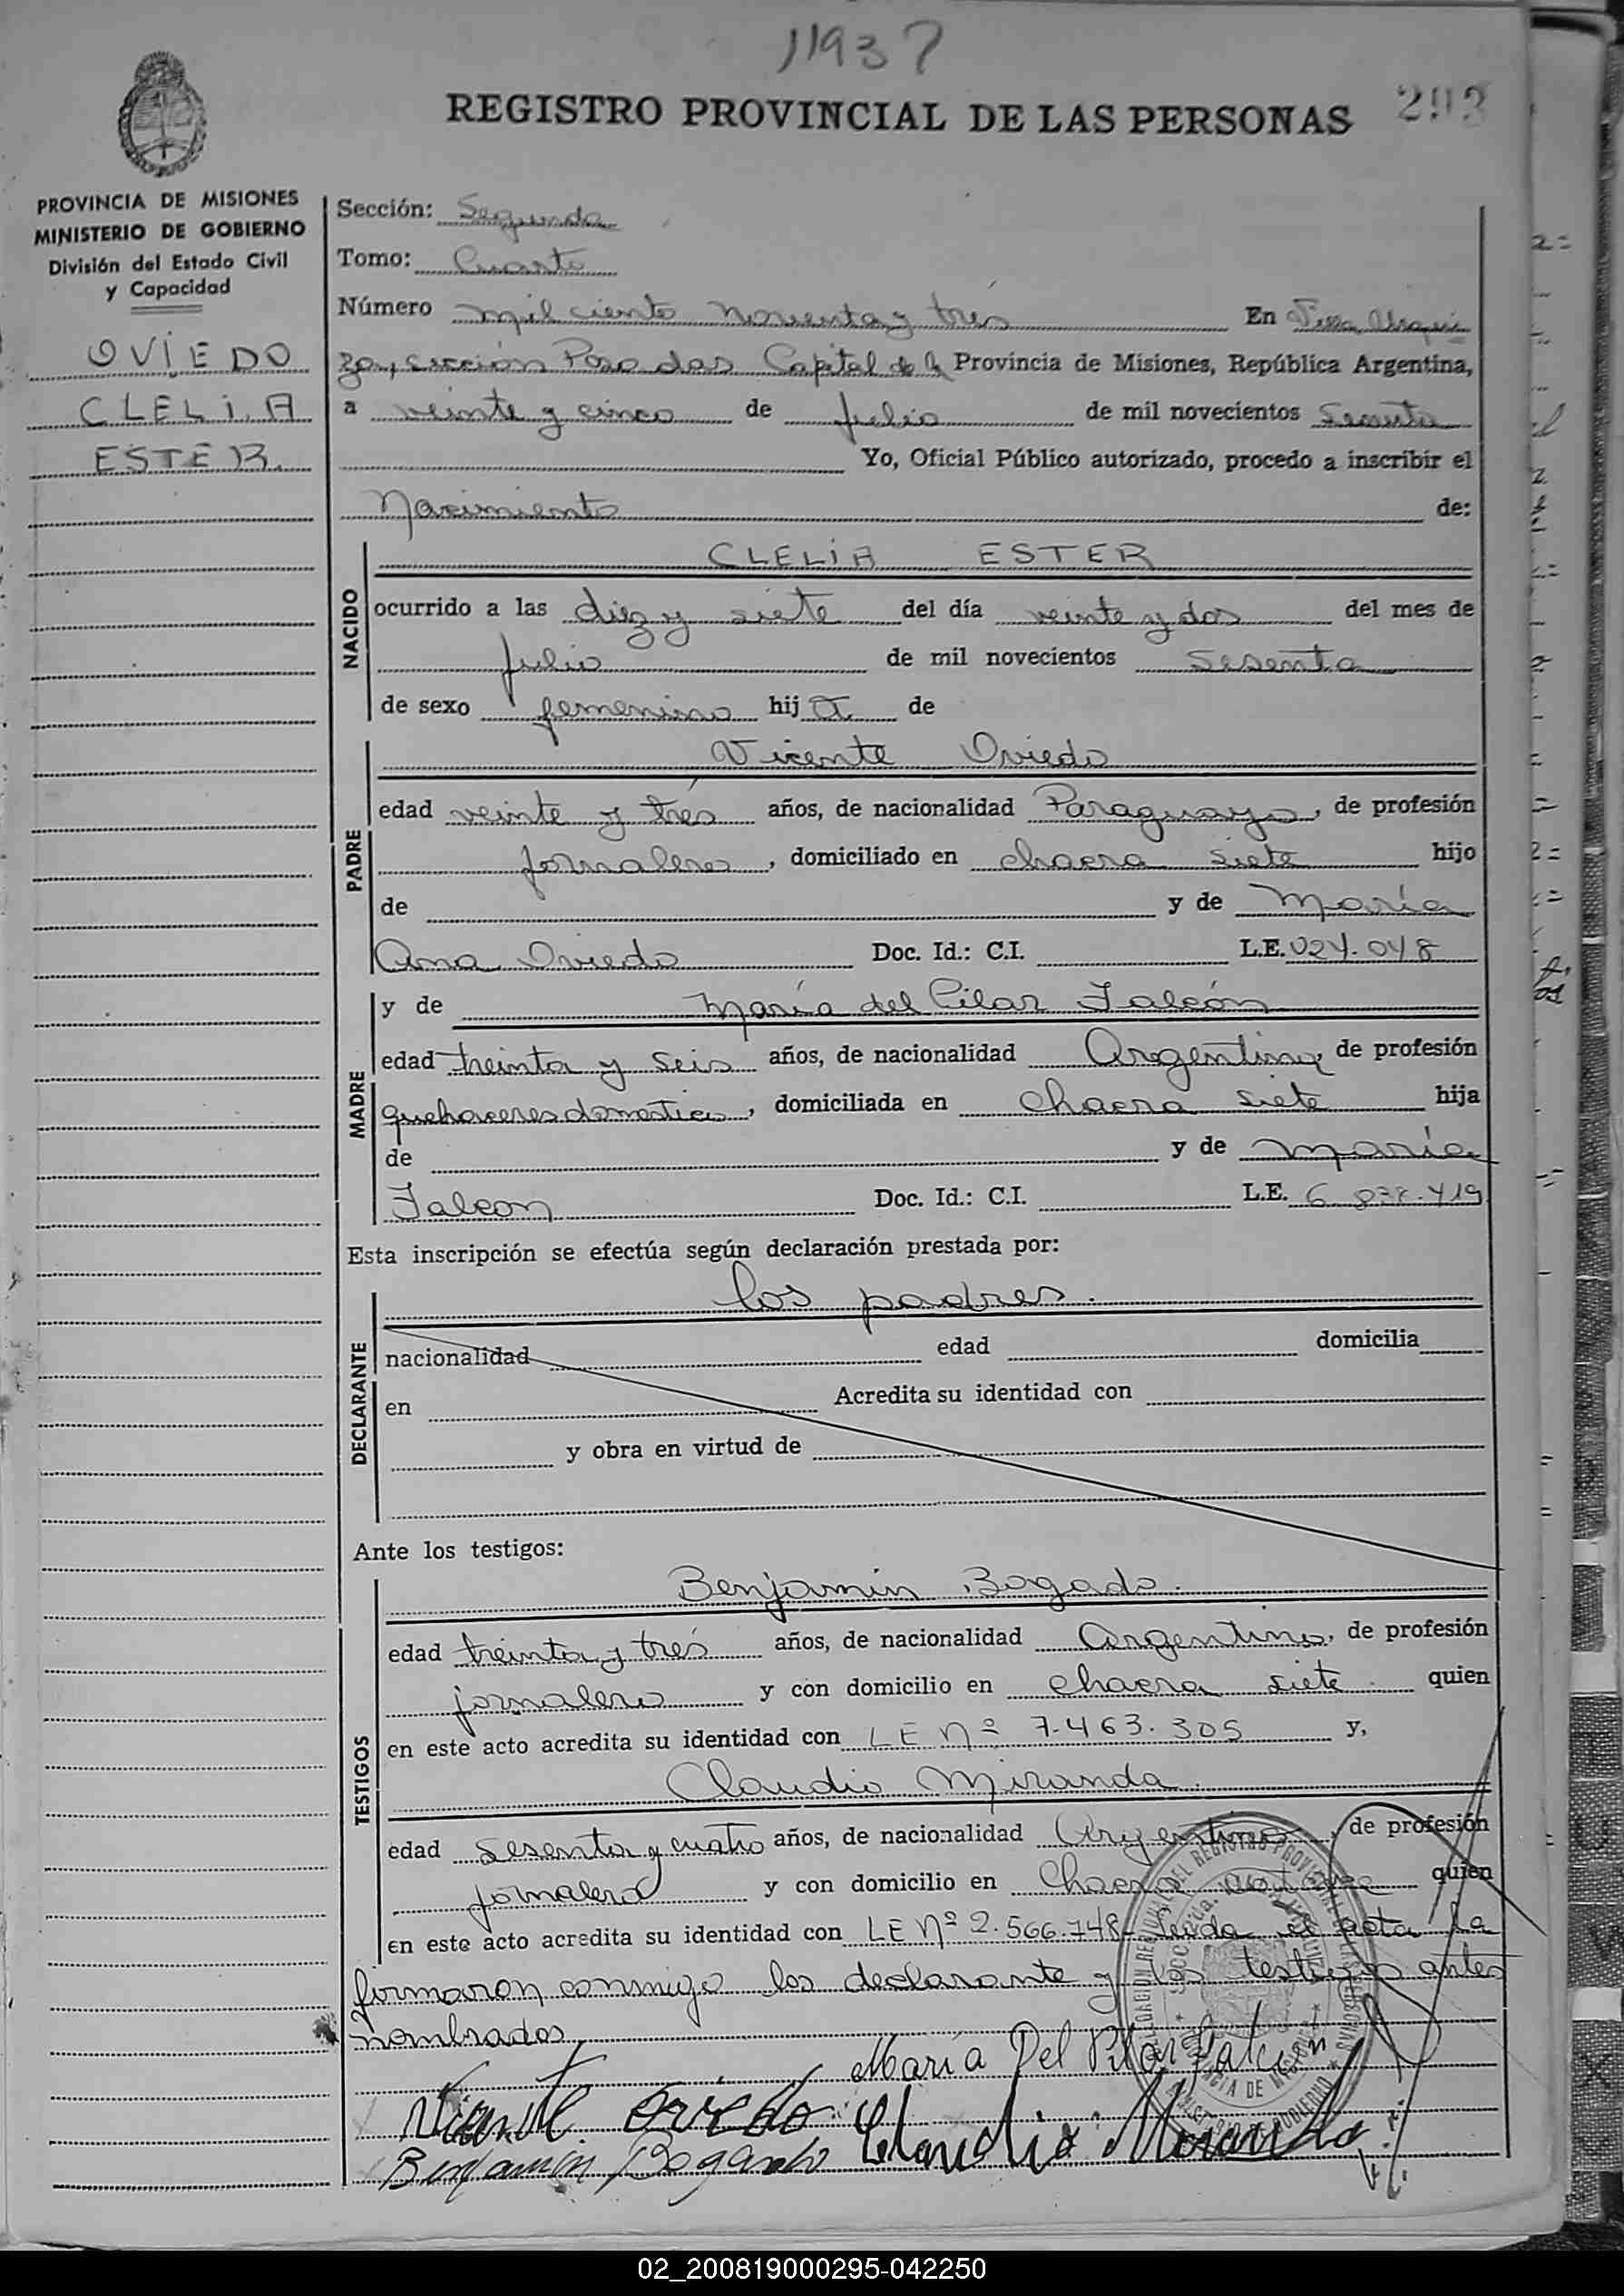 1193
293
REGISTRO PROVINCIAL DE LAS PERSONAS
PROVINCIA DE MISIONES
MINISTERIO DE GOBIERNO
División del Estado Civil
y Capacidad
OVIEDO
CLELIA
ESTER.
Sección: Segunda
Tomo: Cuarto
Número mil ciento noventa y trés En Villa Urqui
za, sección Posadas Capital de la Provincia de Misiones, República Argentina,
a veinte y cinco de julio de mil novecientos Sesenta
Yo, Oficial Público autorizado, procedo a inscribir el
Nacimiento de:
NACIDO
CLELIA ESTER
ocurrido a las diez y siete del día veinte y dos del mes de
julio de mil novecientos Sesenta
de sexo femenino hija de
PADRE
Vicente Oviedo
edad veinte y trés años, de nacionalidad Paraguayo, de profesión
jornalero, domiciliado en chacra siete hijo
de y de María
Ana Oviedo Doc. Id.: C.I. L.E. 024.048
MADRE
y de María del Pilar Falcón
edad treinta y seis años, de nacionalidad Argentina, de profesión
quehaceres domestico, domiciliada en chacra siete hija
de y de María
Falcon Doc. Id.: C.I. L.E. 6.838.419
Esta inscripción se efectúa según declaración prestada por:
DECLARANTE
los padres.
nacionalidad edad domicilia
en Acredita su identidad con
y obra en virtud de
Ante los testigos:
TESTIGOS
Benjamín Bogado.
edad treinta y trés años, de nacionalidad Argentino, de profesión
jornalero y con domicilio en chacra siete. quien
en este acto acredita su identidad con LE Nº 7.463.305 y,
Claudio Miranda.
edad sesenta y cuatro años, de nacionalidad Argentino, de profesión
jornalero y con domicilio en Chacra quien
en este acto acredita su identidad con LE Nº 2.566.748- leida el acta la
firmaron conmigo los declarante y los testigos antes
nombrados
María Del Pilar Falcon
Vicente Oviedo Claudio Miranda
Benjamín Bogado
02_200819000295-042250